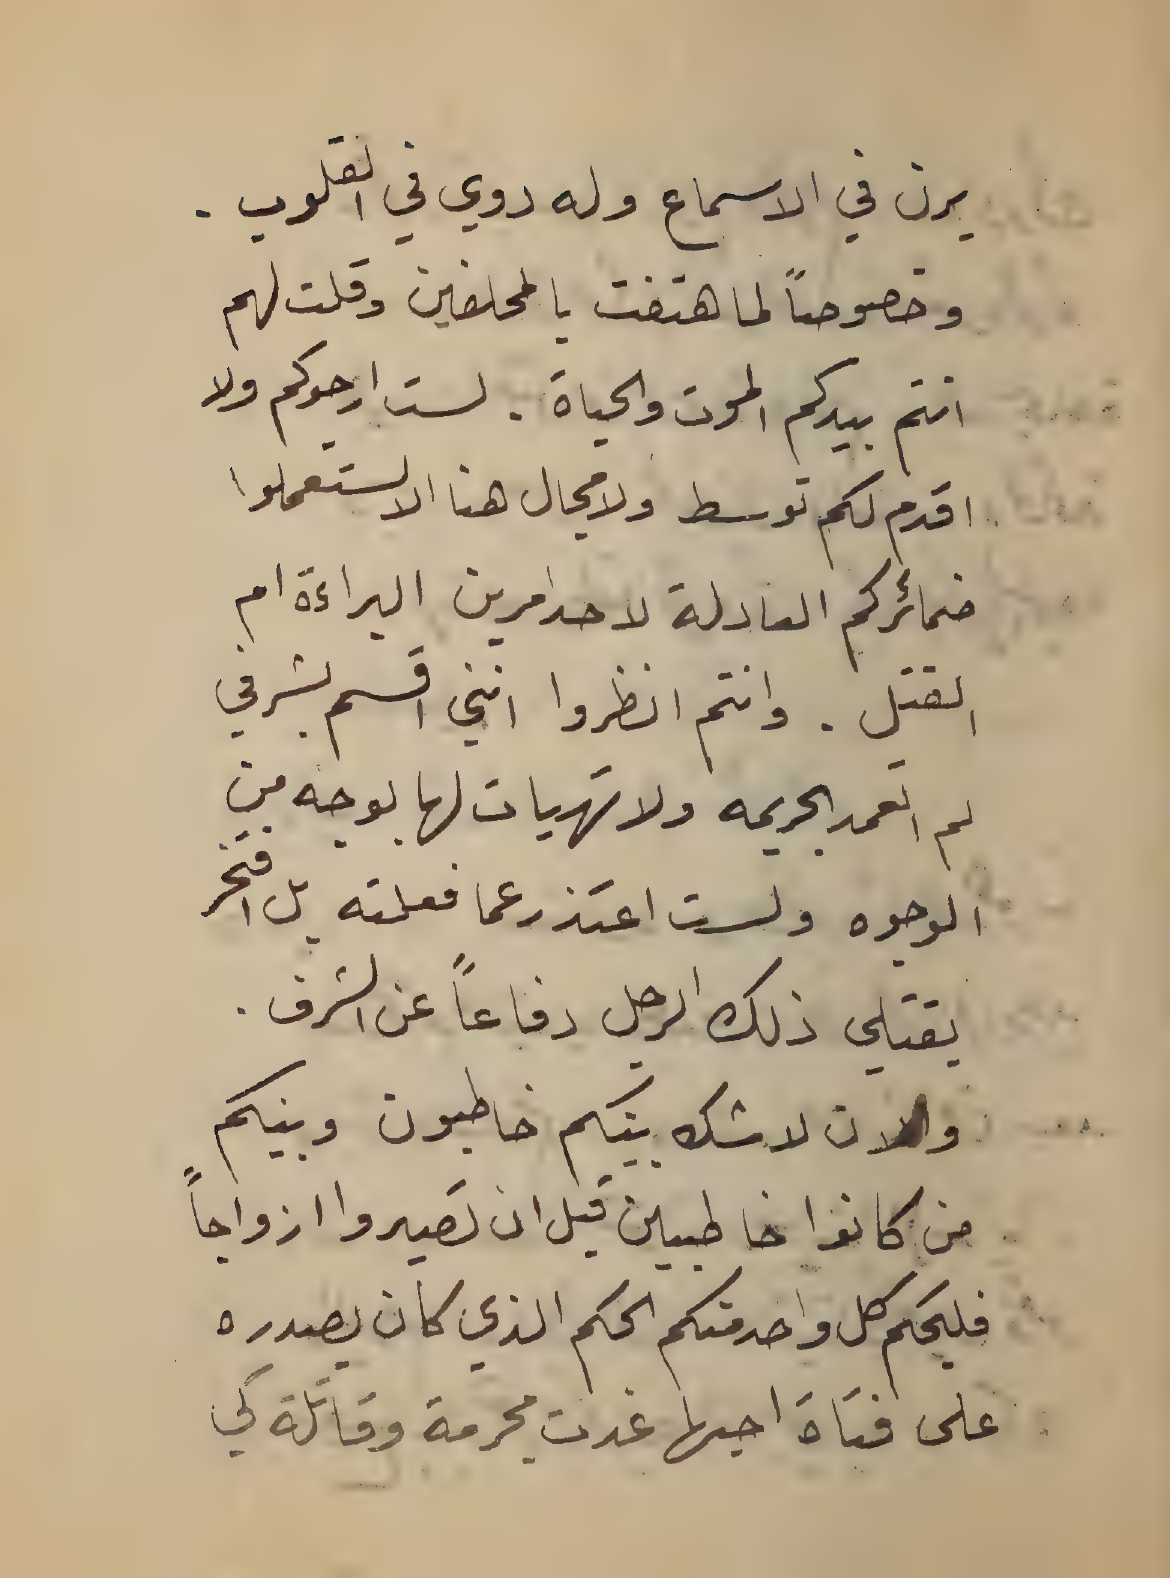 يرن في الاسماع وله دوي في القلوب .
وخصوصاً لما هتفت بالمحلفين وقلت لهم
انتم بيدكم الموت والحياة . لست ارجوكم ولا
اقدم لكم توسط ولا مجال هنا الا لستعملوا
ضمائركم العادلة لاحد امرين البراءة ام
القتل . وانتم انظروا انني اقسم بشرفي
لم اتعمد الجريمه ولا تهيات لها بوجه من
الوجوه ولست اعتذر عما فعلته بل افتخر
بقتلي ذلك الرجل دفاعاً عن الشرف .
والان لا شك بينكم خاطبون وبينكم
من كانوا خاطبين قبل ان تصيروا ازواجاً
فليحكم كل واحد منكم الحكم الذي كان يصدره
على فتاة احبها غدت مجرمة وقاتلة كي